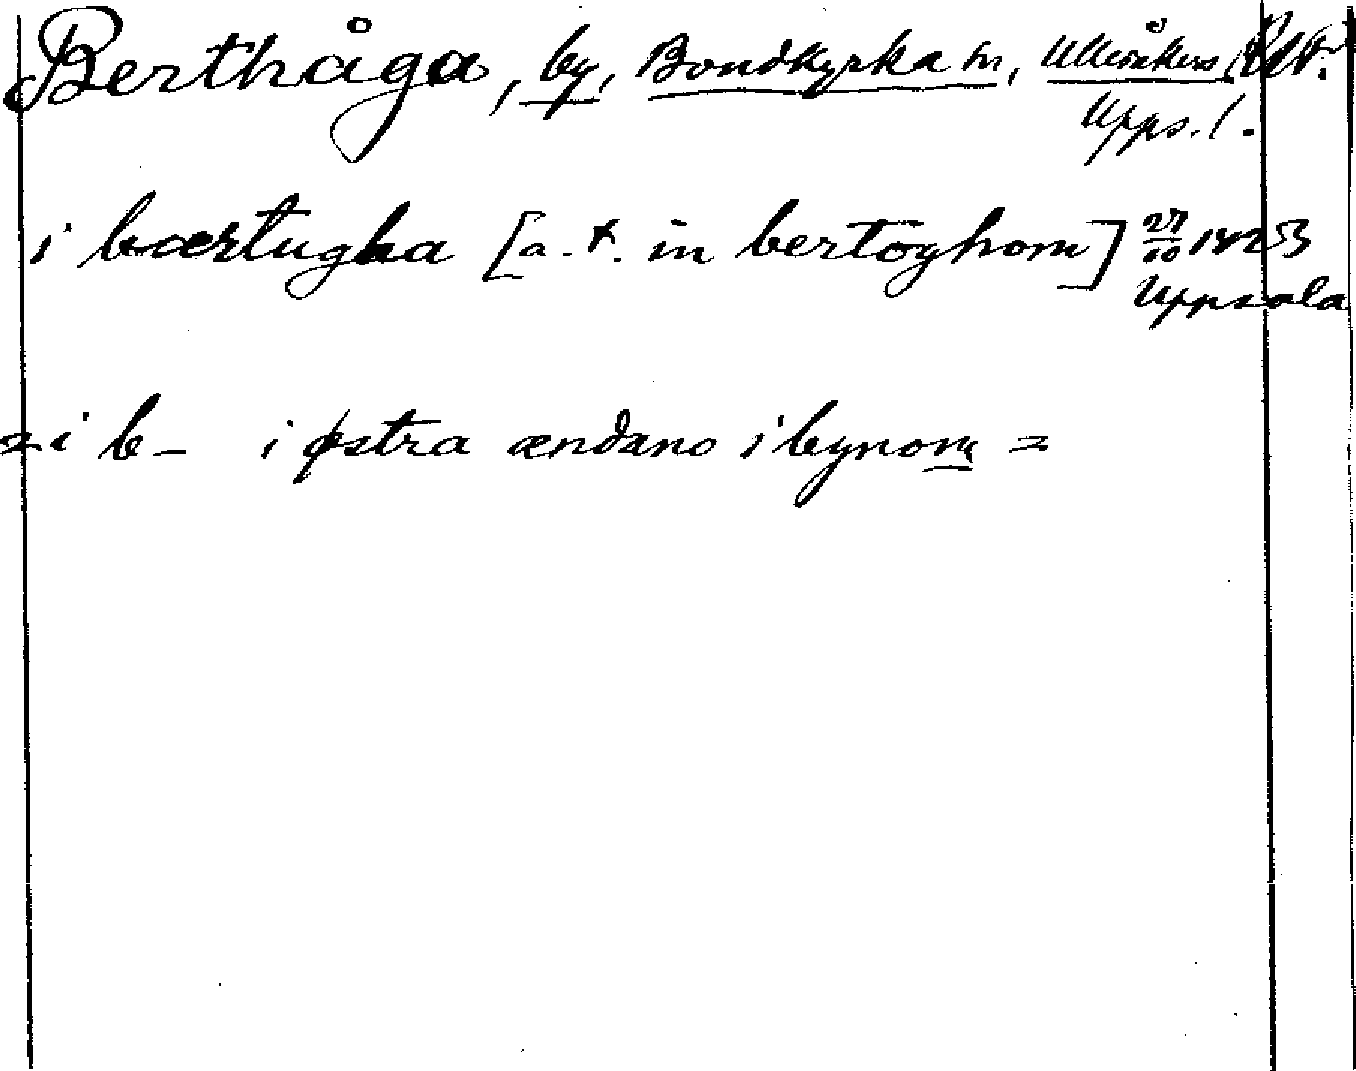 Berthåga, by, Bondkyrka sn, Ulleråkers
Upps. l.
i bærtugha [a. t. in bertoghom] 27/10 1423
Uppsala
= i b- i østra ændano i bynom =